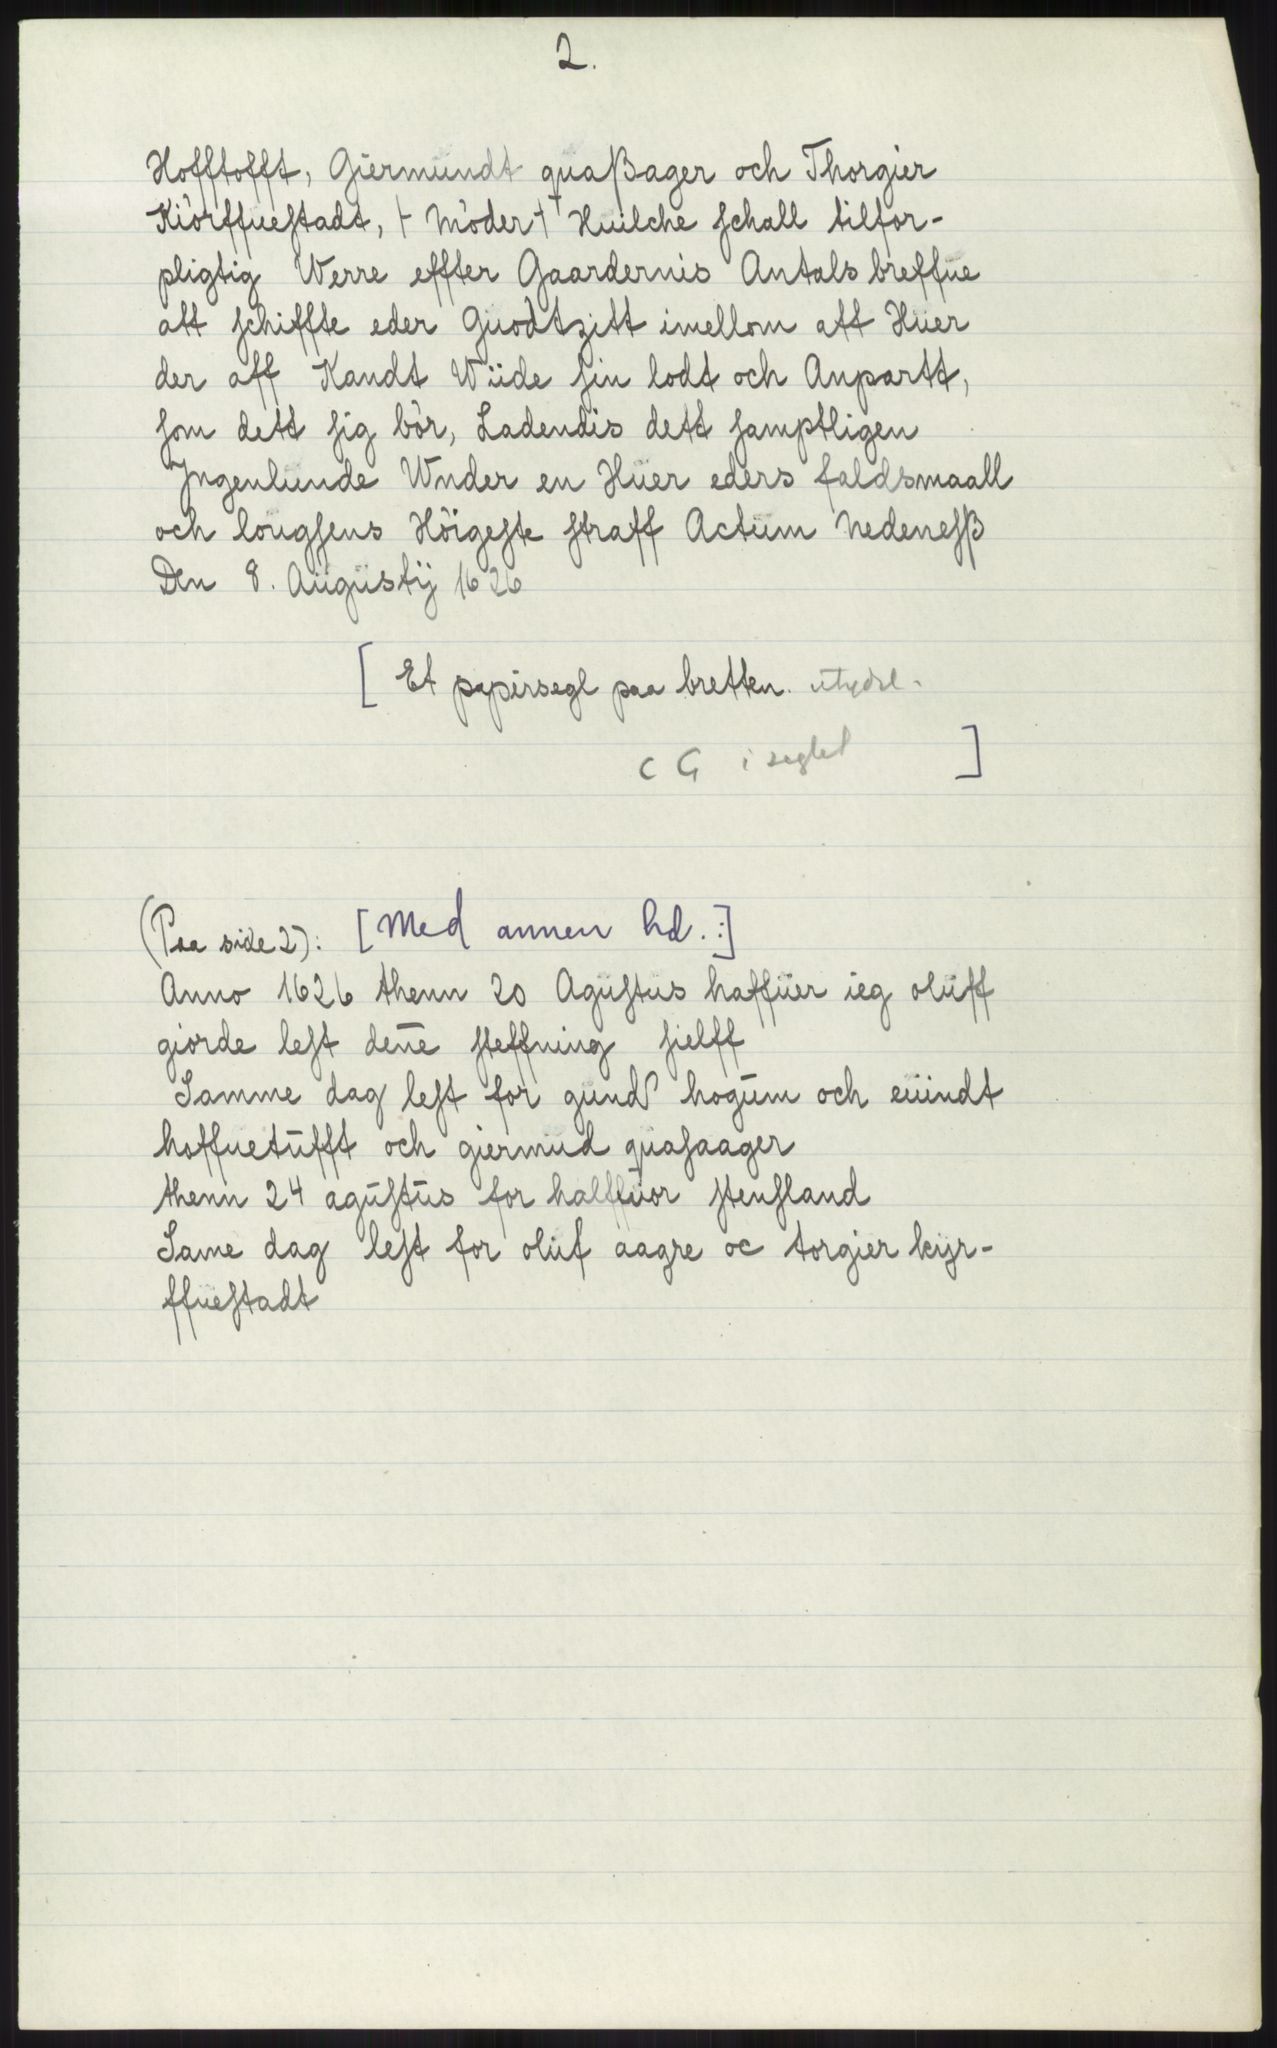 2.
Hofftofft, Giermundt quaßager och Thorgier
Kiörffuestadt, + Möder + Huilche schall tilfor-
pligtig Werre effter Gaardernis Antals breffue
att schiffte eder Guodtzitt imellom att Hüer
der aff Kandt Wüde sin lodt och Anpartt,
som dett sig bör, Ladendis dett samptligen
Jngenlunde Wnder en Hüer eders faldsmaall
och lougsens Höigeste straff Actum Nedenesß
Den 8. Augustij 1626
[ Et papirsegl paa bretten. utydel.
C G i seglet ]
(Paa side 2): [Med annen hd.:]
Anno 1626 thenn 20 Agustus haffüer ieg oluff
giorde lest dene steffning sielff
Samme dag lest for gund hogum och euindt
hoffuetufft och giermud quasaager
thenn 24 agustus for halffuor stensland
Same dag lest for oluf aagre oc torgier kyr-
ffuestadt